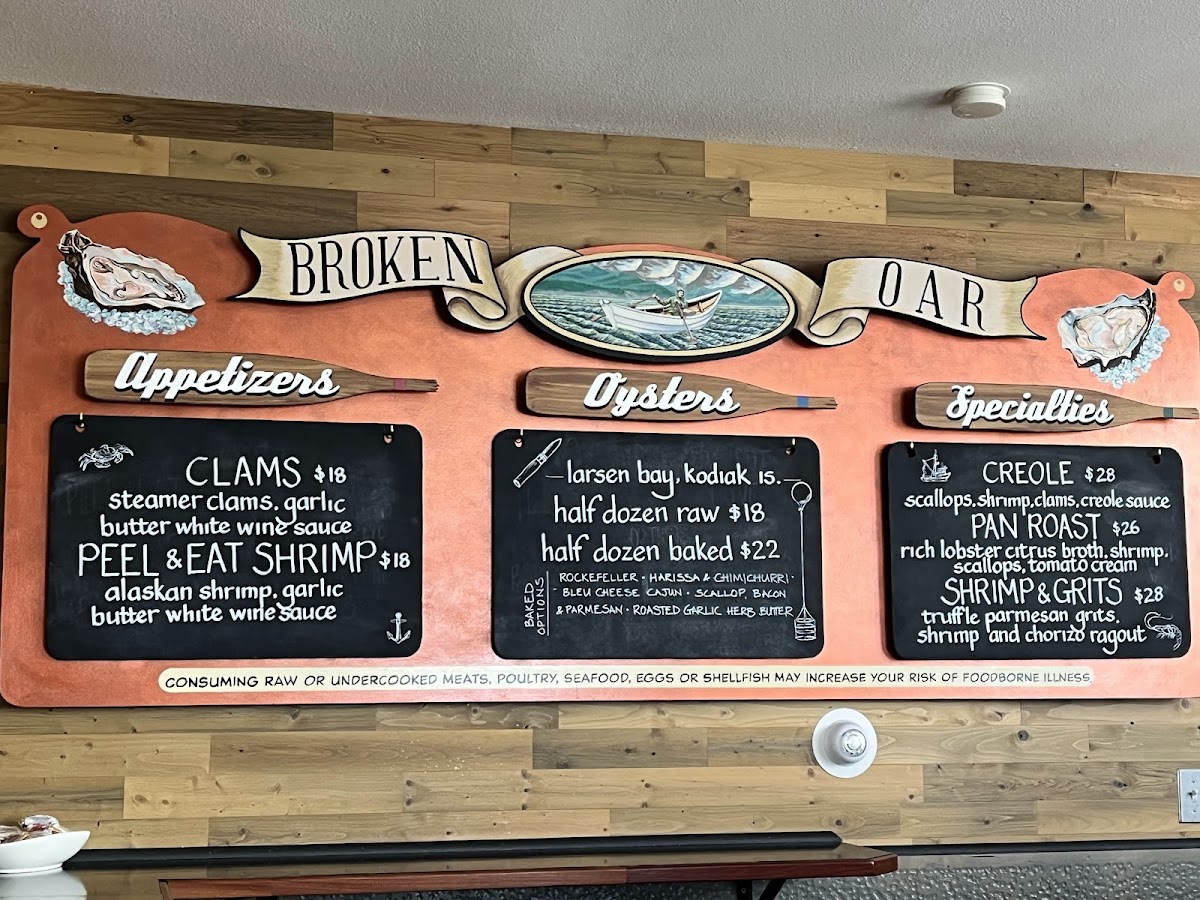 BROKEN OAR
Appetizers
CLAMS $18
steamer clams. garlic
butter white wine sauce
PEEL & EAT SHRIMP $18
alaskan shrimp. garlic
butter white wine sauce
Oysters
-larsen bay, kodiak is.-
half dozen raw $18
half dozen baked $22
BAKED
OPTIONS
ROCKEFELLER · HARISSA & CHIMICHURRI ·
BLEU CHEESE CAJUN · SCALLOP, BACON
& PARMESAN · ROASTED GARLIC HERB BUTTER
Specialties
CREOLE $28
scallops, shrimp, clams, creole sauce
PAN ROAST $26
rich lobster citrus broth, shrimp,
scallops, tomato cream
SHRIMP & GRITS $28
truffle parmesan grits,
shrimp and chorizo ragout
CONSUMING RAW OR UNDERCOOKED MEATS, POULTRY, SEAFOOD, EGGS OR SHELLFISH MAY INCREASE YOUR RISK OF FOODBORNE ILLNESS.